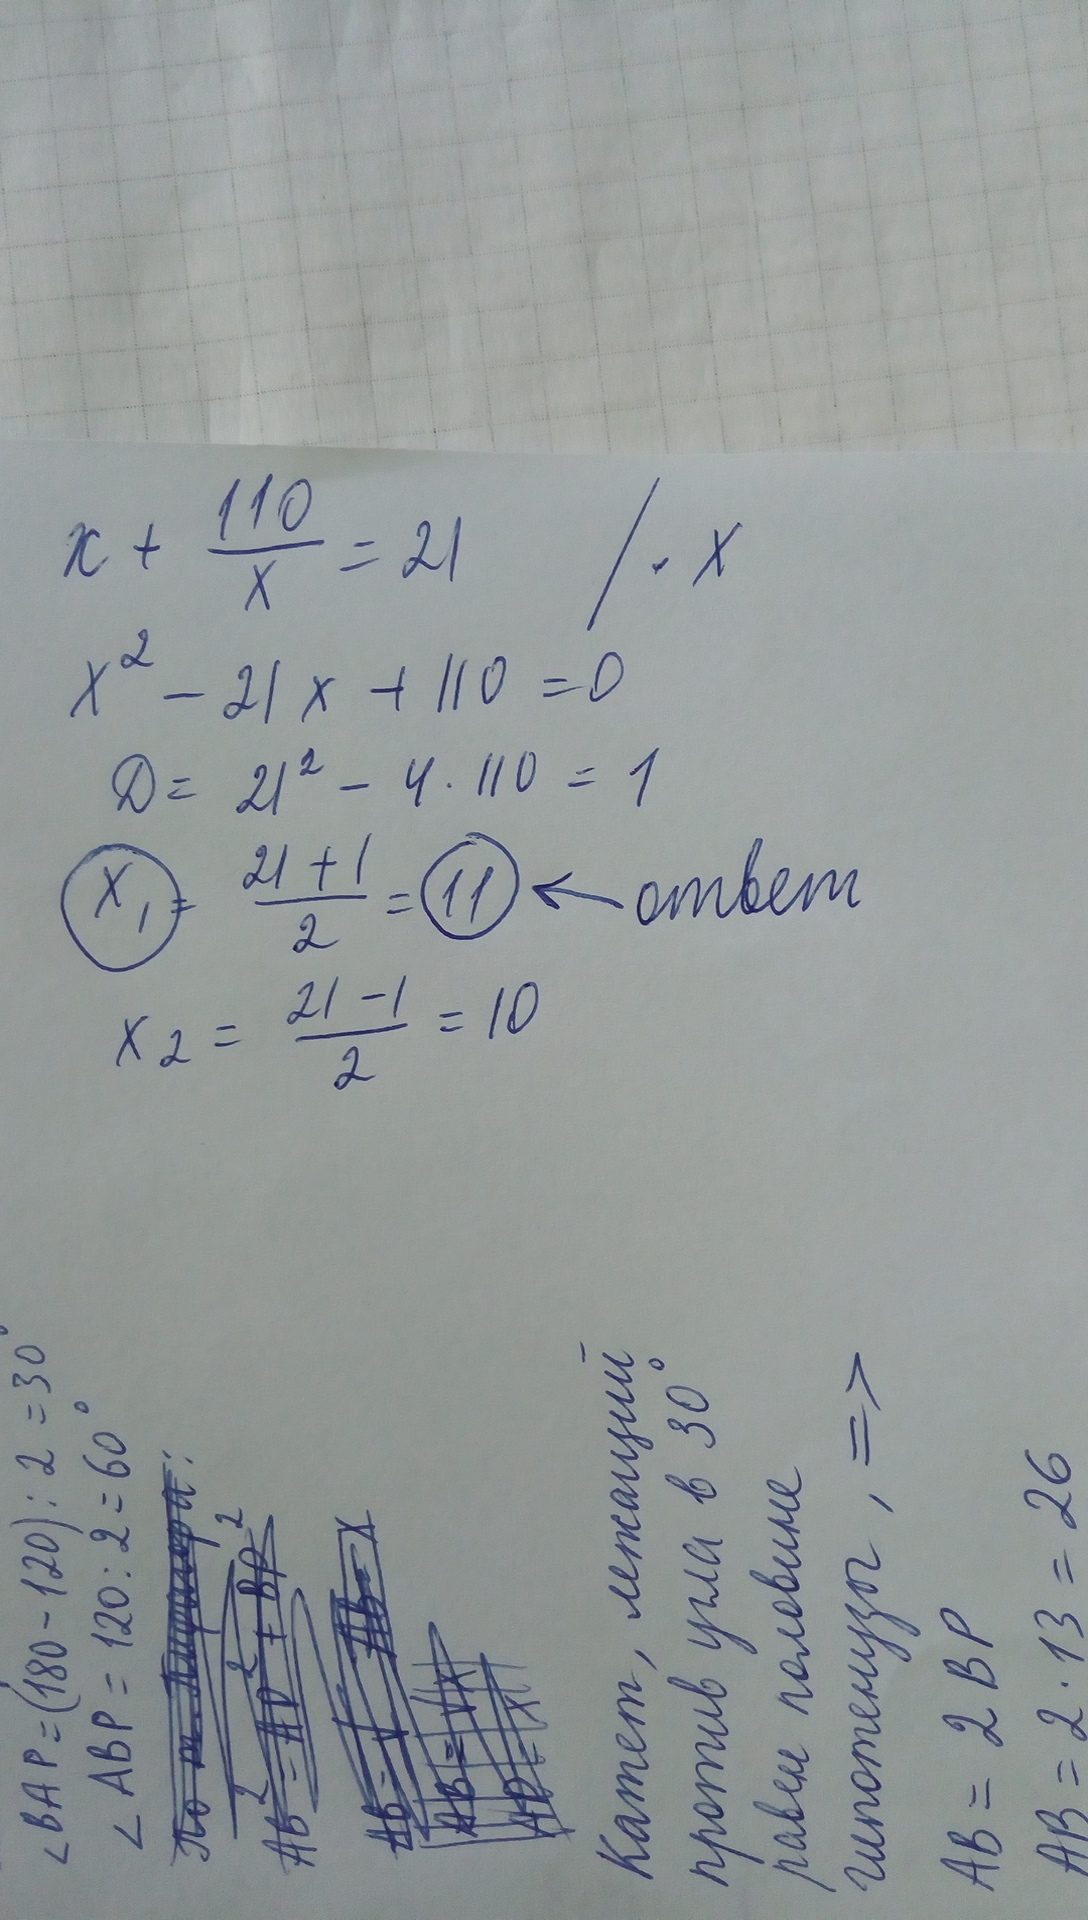 x + 110/x = 21 / · x
x² - 21x + 110 = 0
D = 21² - 4 · 110 = 1
x₁ = (21 + 1)/2 = 11 ← ответ
x₂ = (21 - 1)/2 = 10
∠BAP = (180 - 120) : 2 = 30°
∠ABP = 120 : 2 = 60°
По т. Пифагора:
AB² = AP² + BP²
Катет, лежащий
против угла в 30°
равен половине
гипотенузы, =>
AB = 2BP
AB = 2 · 13 = 26